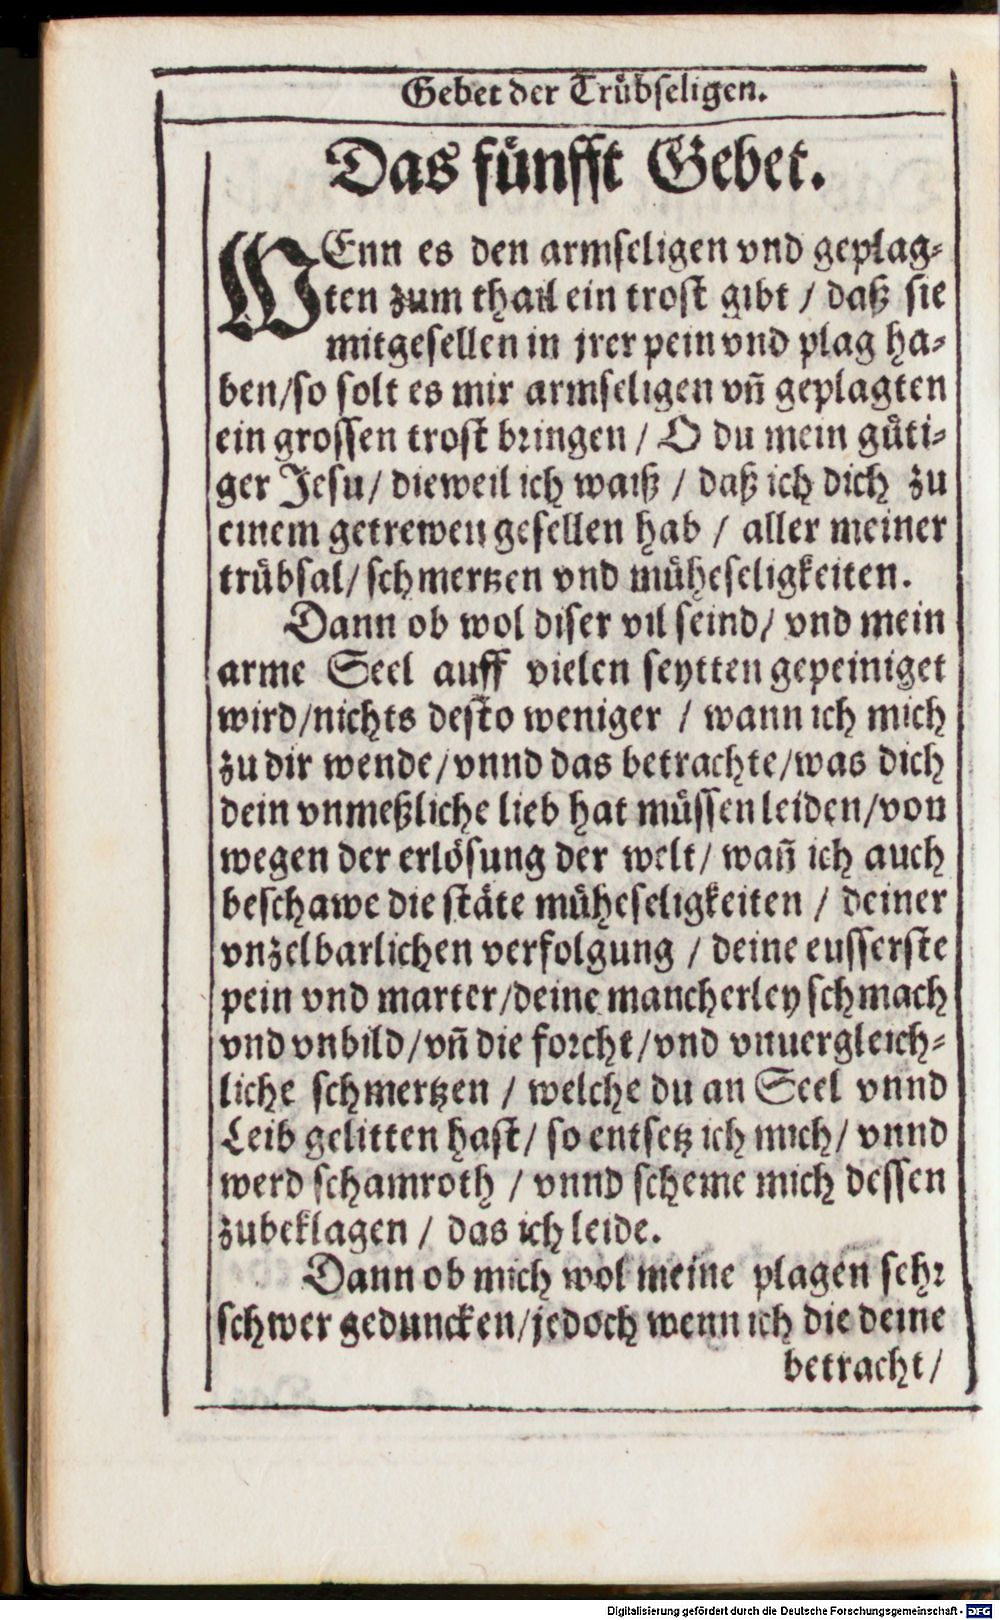 Gebet der Trübseligen.
Das fünfft Gebet.
WEnn es den armseligen vnd geplag-
ten zum thail ein trost gibt / daß sie
mitgesellen in jrer pein vnd plag ha-
ben/so solt es mir armseligen vñ geplagten
ein grossen trost bringen / O du mein güti-
ger Jesu/ dieweil ich waiß / daß ich dich zu
einem getrewen gesellen hab / aller meiner
trübsal/ schmertzen vnd müheseligkeiten.
Dann ob wol diser vil seind/ vnd mein
arme Seel auff vielen seytten gepeiniget
wird/nichts desto weniger / wann ich mich
zu dir wende/vnnd das betrachte/was dich
dein vnmeßliche lieb hat müssen leiden/von
wegen der erlösung der welt/ wañ ich auch
beschawe die stäte müheseligkeiten / deiner
vnzelbarlichen verfolgung / deine eusserste
pein vnd marter/deine mancherley schmach
vnd vnbild/vñ die forcht/vnd vnuergleich-
liche schmertzen / welche du an Seel vnnd
Leib gelitten hast/ so entsetz ich mich/ vnnd
werd schamroth / vnnd scheme mich dessen
zubeklagen / das ich leide.
Dann ob mich wol meine plagen sehr
schwer geduncken/jedoch wenn ich die deine
betracht/
Digitalisierung gefördert durch die Deutsche Forschungsgemeinschaft - DFG